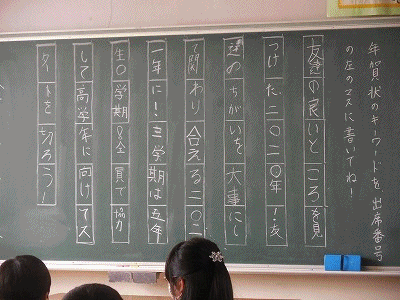 年賀状のキーワードを出席番号
の左のマスに書いてね！
友達の良いところを見
つけた二〇二〇年！友
達のちがいを大事にし
て関わり合える二〇二
一年に！三学期は五年
生〇学期&全員で協力
して高学年に向けてス
タートを切ろう！